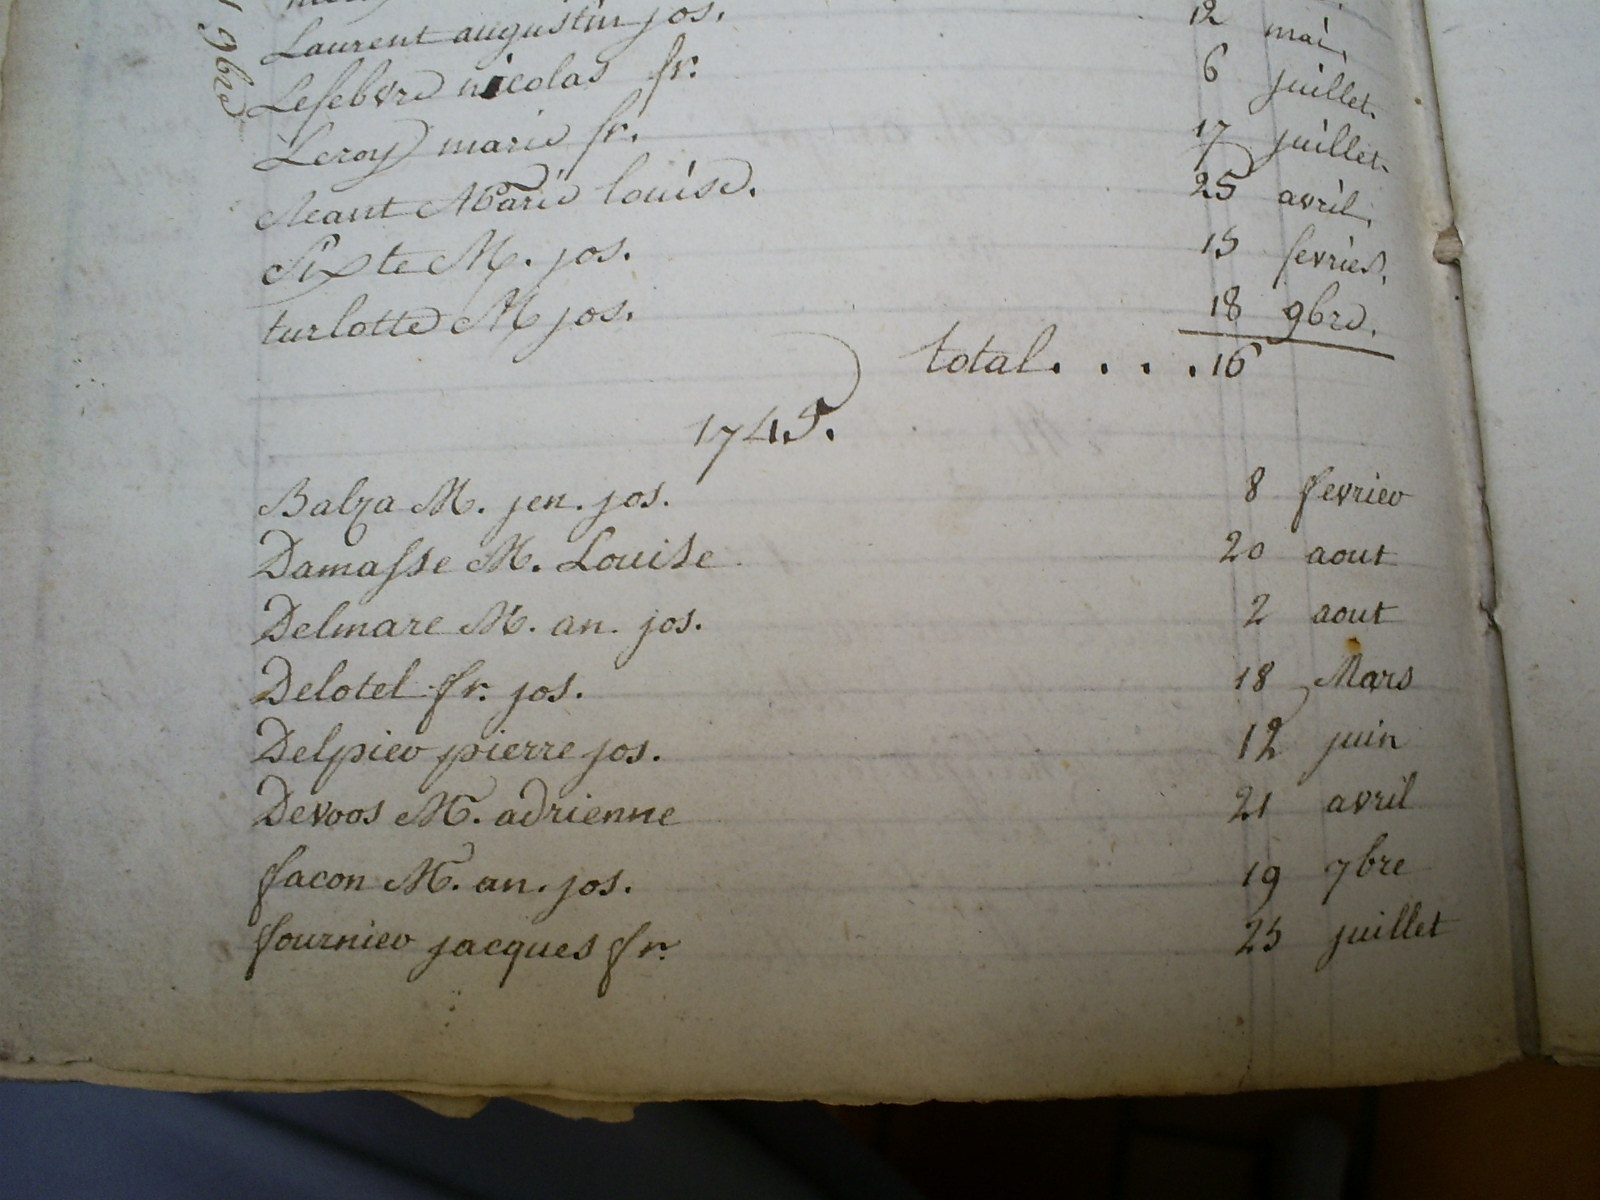 Laurent augustin jos. 12 mai.
Lefebvre nicolas fr. 6 juillet.
Leroy marie fr. 17 juillet.
Neant Marie louise. 25 avril.
Sixte M. jos. 15 fevrier.
turlotte M jos. 18 9bre.
total. . . . . 16
1745.
Balza M. jen. jos. 8 fevrier
Damasse M. Louise 20 aout
Delmare M. an. jos. 2 aout
Delotel fr. jos. 18 Mars
Delpier pierre jos. 12 juin
Devoos M. adrienne 21 avril
facon M. an. jos. 19 7bre
fournier jacques fr. 25 juillet
9bre